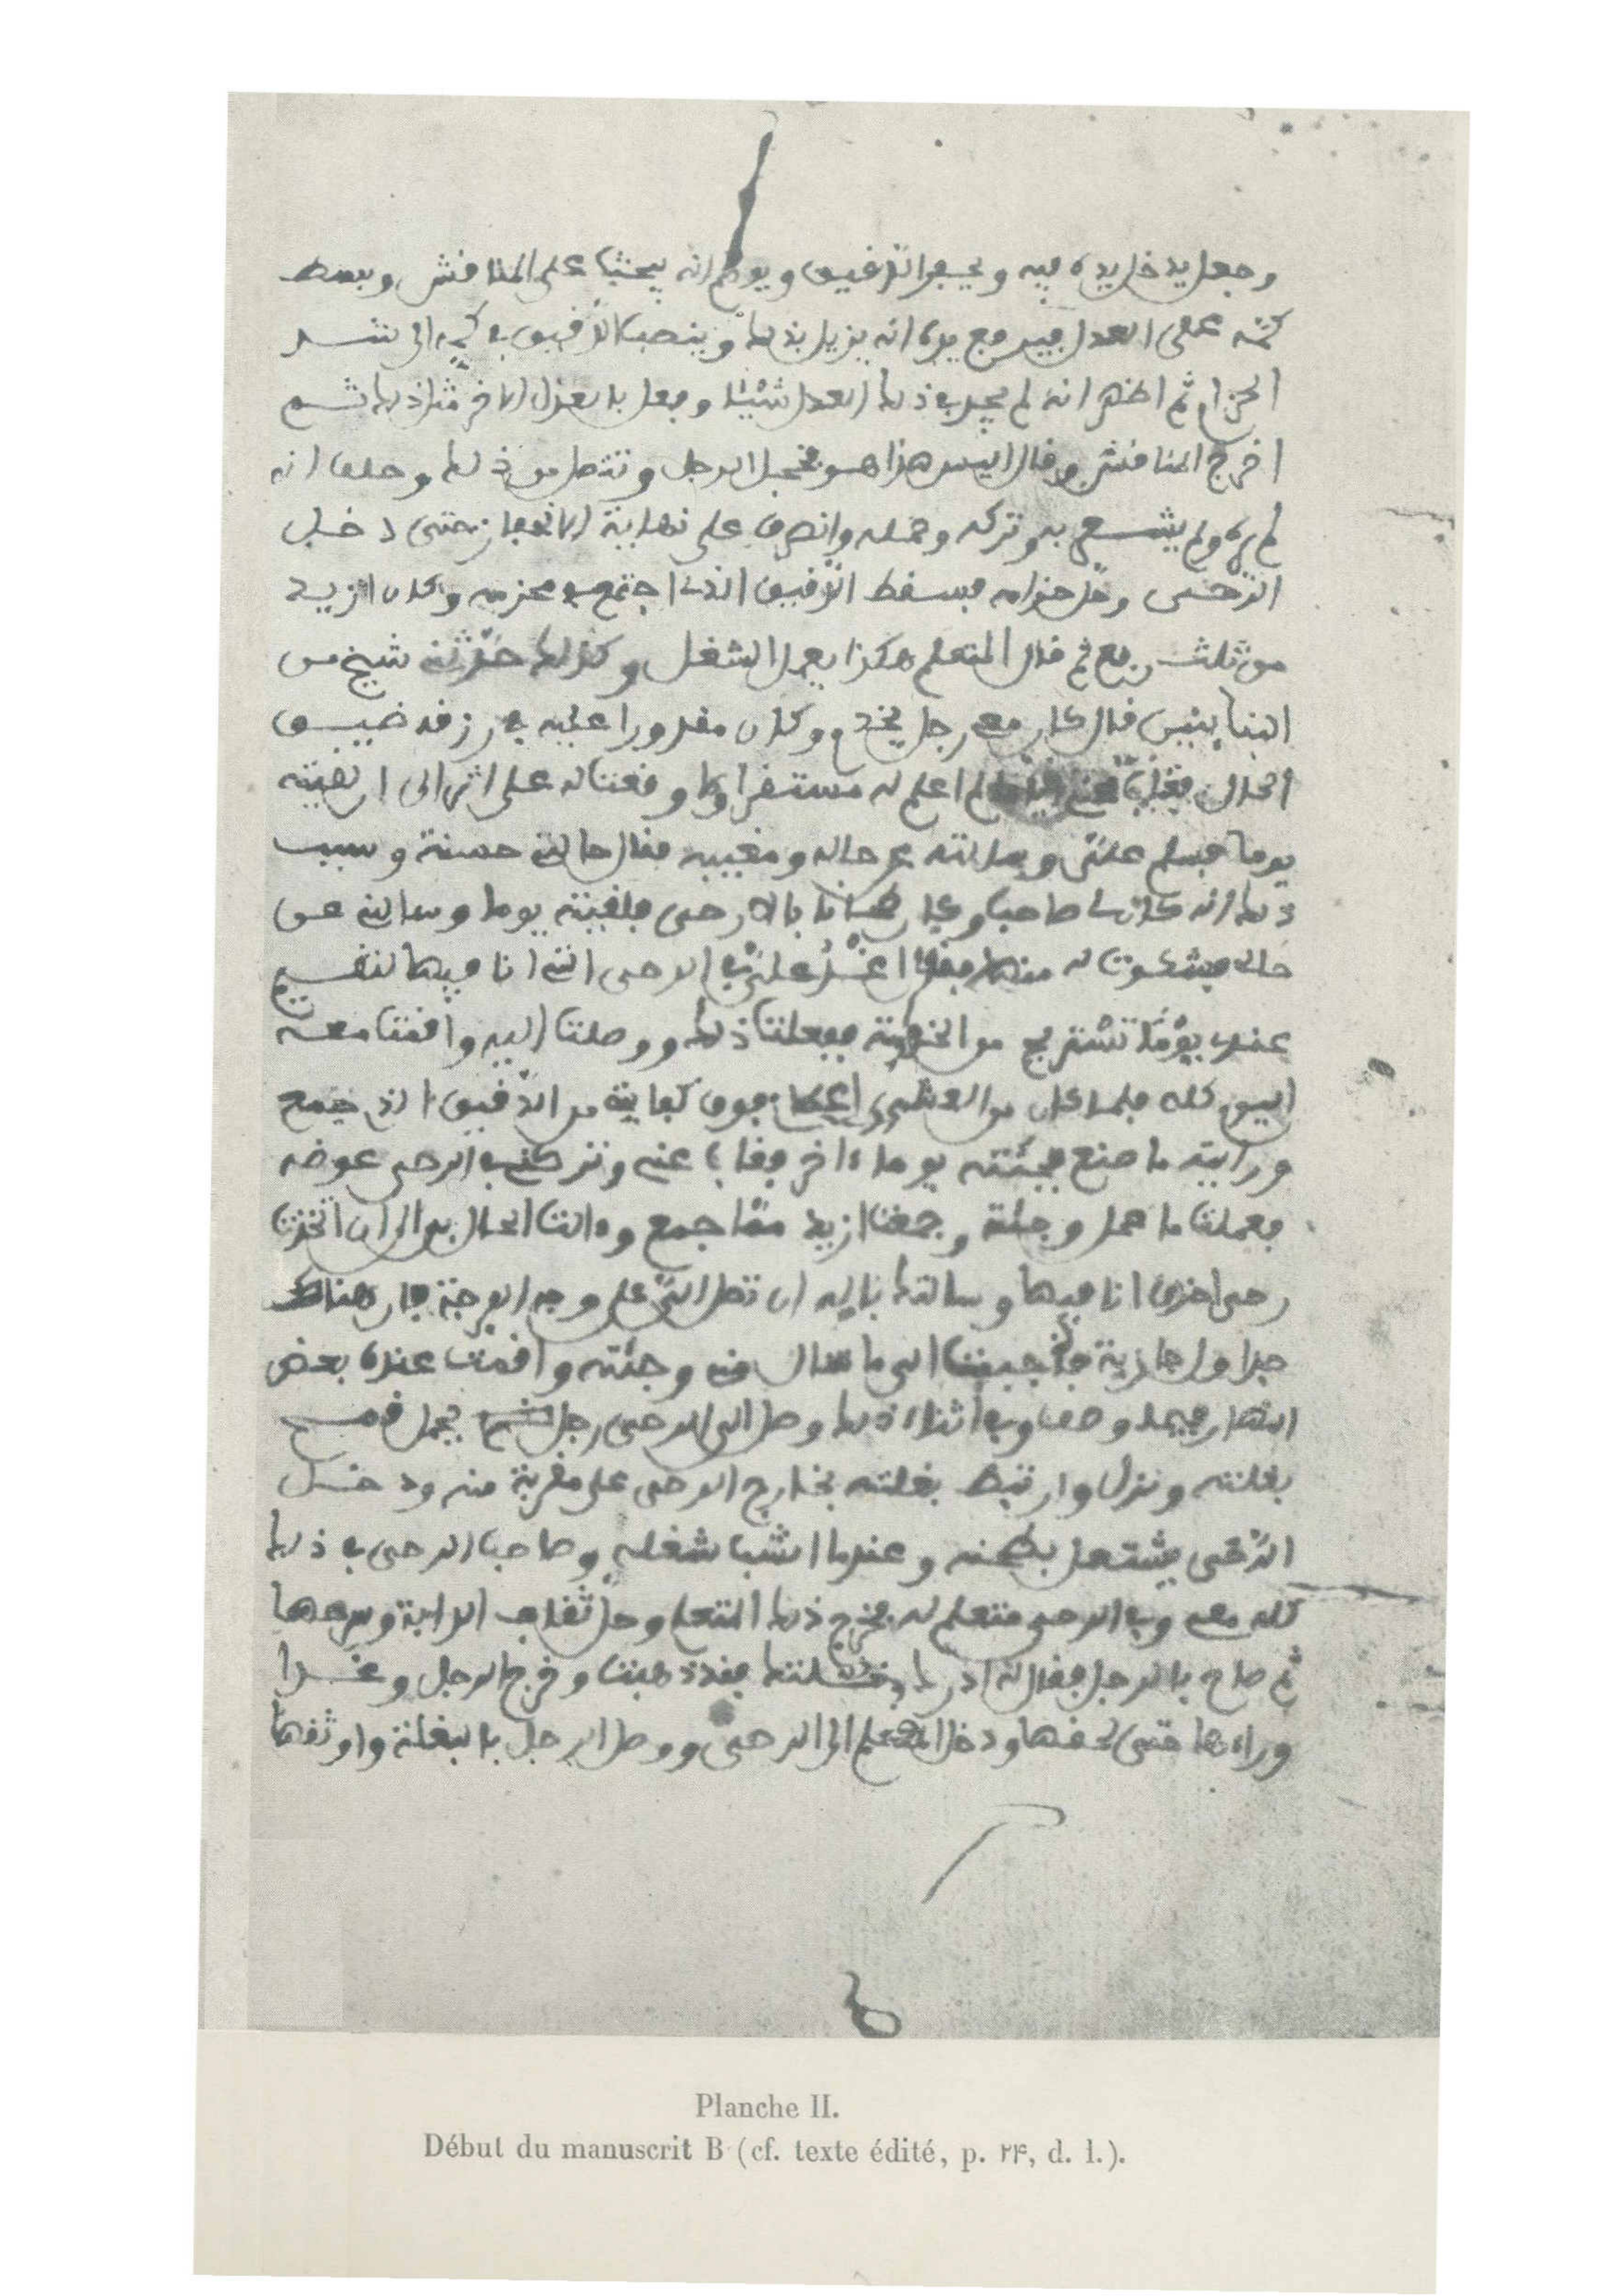 وجعل يدخل يده فيه ويحفر الدقيق ويوهم انه يبحث على المنافش وبسط
كمه على العدل فيرفع يده انه يزيل بذلك وينصب الدقيق في كمه الى شد
الحزام ثم اظهر انه لم يجد في ذلك العدل شيئا وفعل بالعدل الاخر مثل ذلك ثم
اخرج المنافش وقال اليس هذا هو فخجل الرجل وتنصل من ذلك وحلف انه
لم يره ولم يشعر به وتركه وحمله وانصرف على نهاية حتى دخل
الرحى وحل حزامه فسقط الدقيق الذي اجتمع في محزمه وكان ازيد
من ثلث ربع ثم قال للمتعلم هكذا يعمل الشغل وكذلك حدثني شيخ من
قال كان معي رجل يخدم وكان مقدورا عليه في رزقه ضيق
الحال فغاب عني لم اعلم له مستقرا ولا وقعت له على اثر الى ان لقيته
يوما فسلم علي وسالته عن حاله ومغيبه فقال حالتي حسنة وسبب
ذلك انه كان لي صاحب وكان طحانا بالارحى فلقيته يوما وسالني عن
حالي فشكوت له منها فقال اغد علي الى الرحى التي انا فيها لنقيم
عندي يوما تستريح من الخدمة ففعلت ذلك ووصلت اليه واقمت معه
اليوم كله فلما كان من العشي اعطا فوق كفاية من الدقيق الذي جمع
ورايت ما صنع فجئته يوما ءاخر فغاب عني وتركني في الرحى عوضه
فعملت ما عمل وجئته وجمعت ازيد مما جمع وءالت الحال بي الى ان اتخذت
رحى اخرى انا فيها وسالتك بالله ان تصل الي على وجه الفرجة فان هناك
جداول جارية فاجبته الى ما سال مني وجئته واقمت عنده بعض
النهار فيما وصف وفي اثناء ذلك وصل الى الرحى رجل يحمل قمح
بغلته ونزل وارتبط بغلته بخارج الرحى على مقربة منه ودخل
الرحى يشتغل بطحنه وعندما انشب شغله وصاحب الرحى في ذلك
كله معي وفي الرحى متعلم له فخرج ذلك المتعلم وحل ثقاف الدابة وسرحها
ثم صاح بالرجل فقال له ادرك بغلتك فقد ذهبت وخرج الرجل وغدا
وراءها حتى لحقها ودخل المتعلم الى الرحى ووصل الرجل بالبغلة واوثقها
Planche II.
Début du manuscrit B (cf. texte édité, p. ٢٤, d. l.).